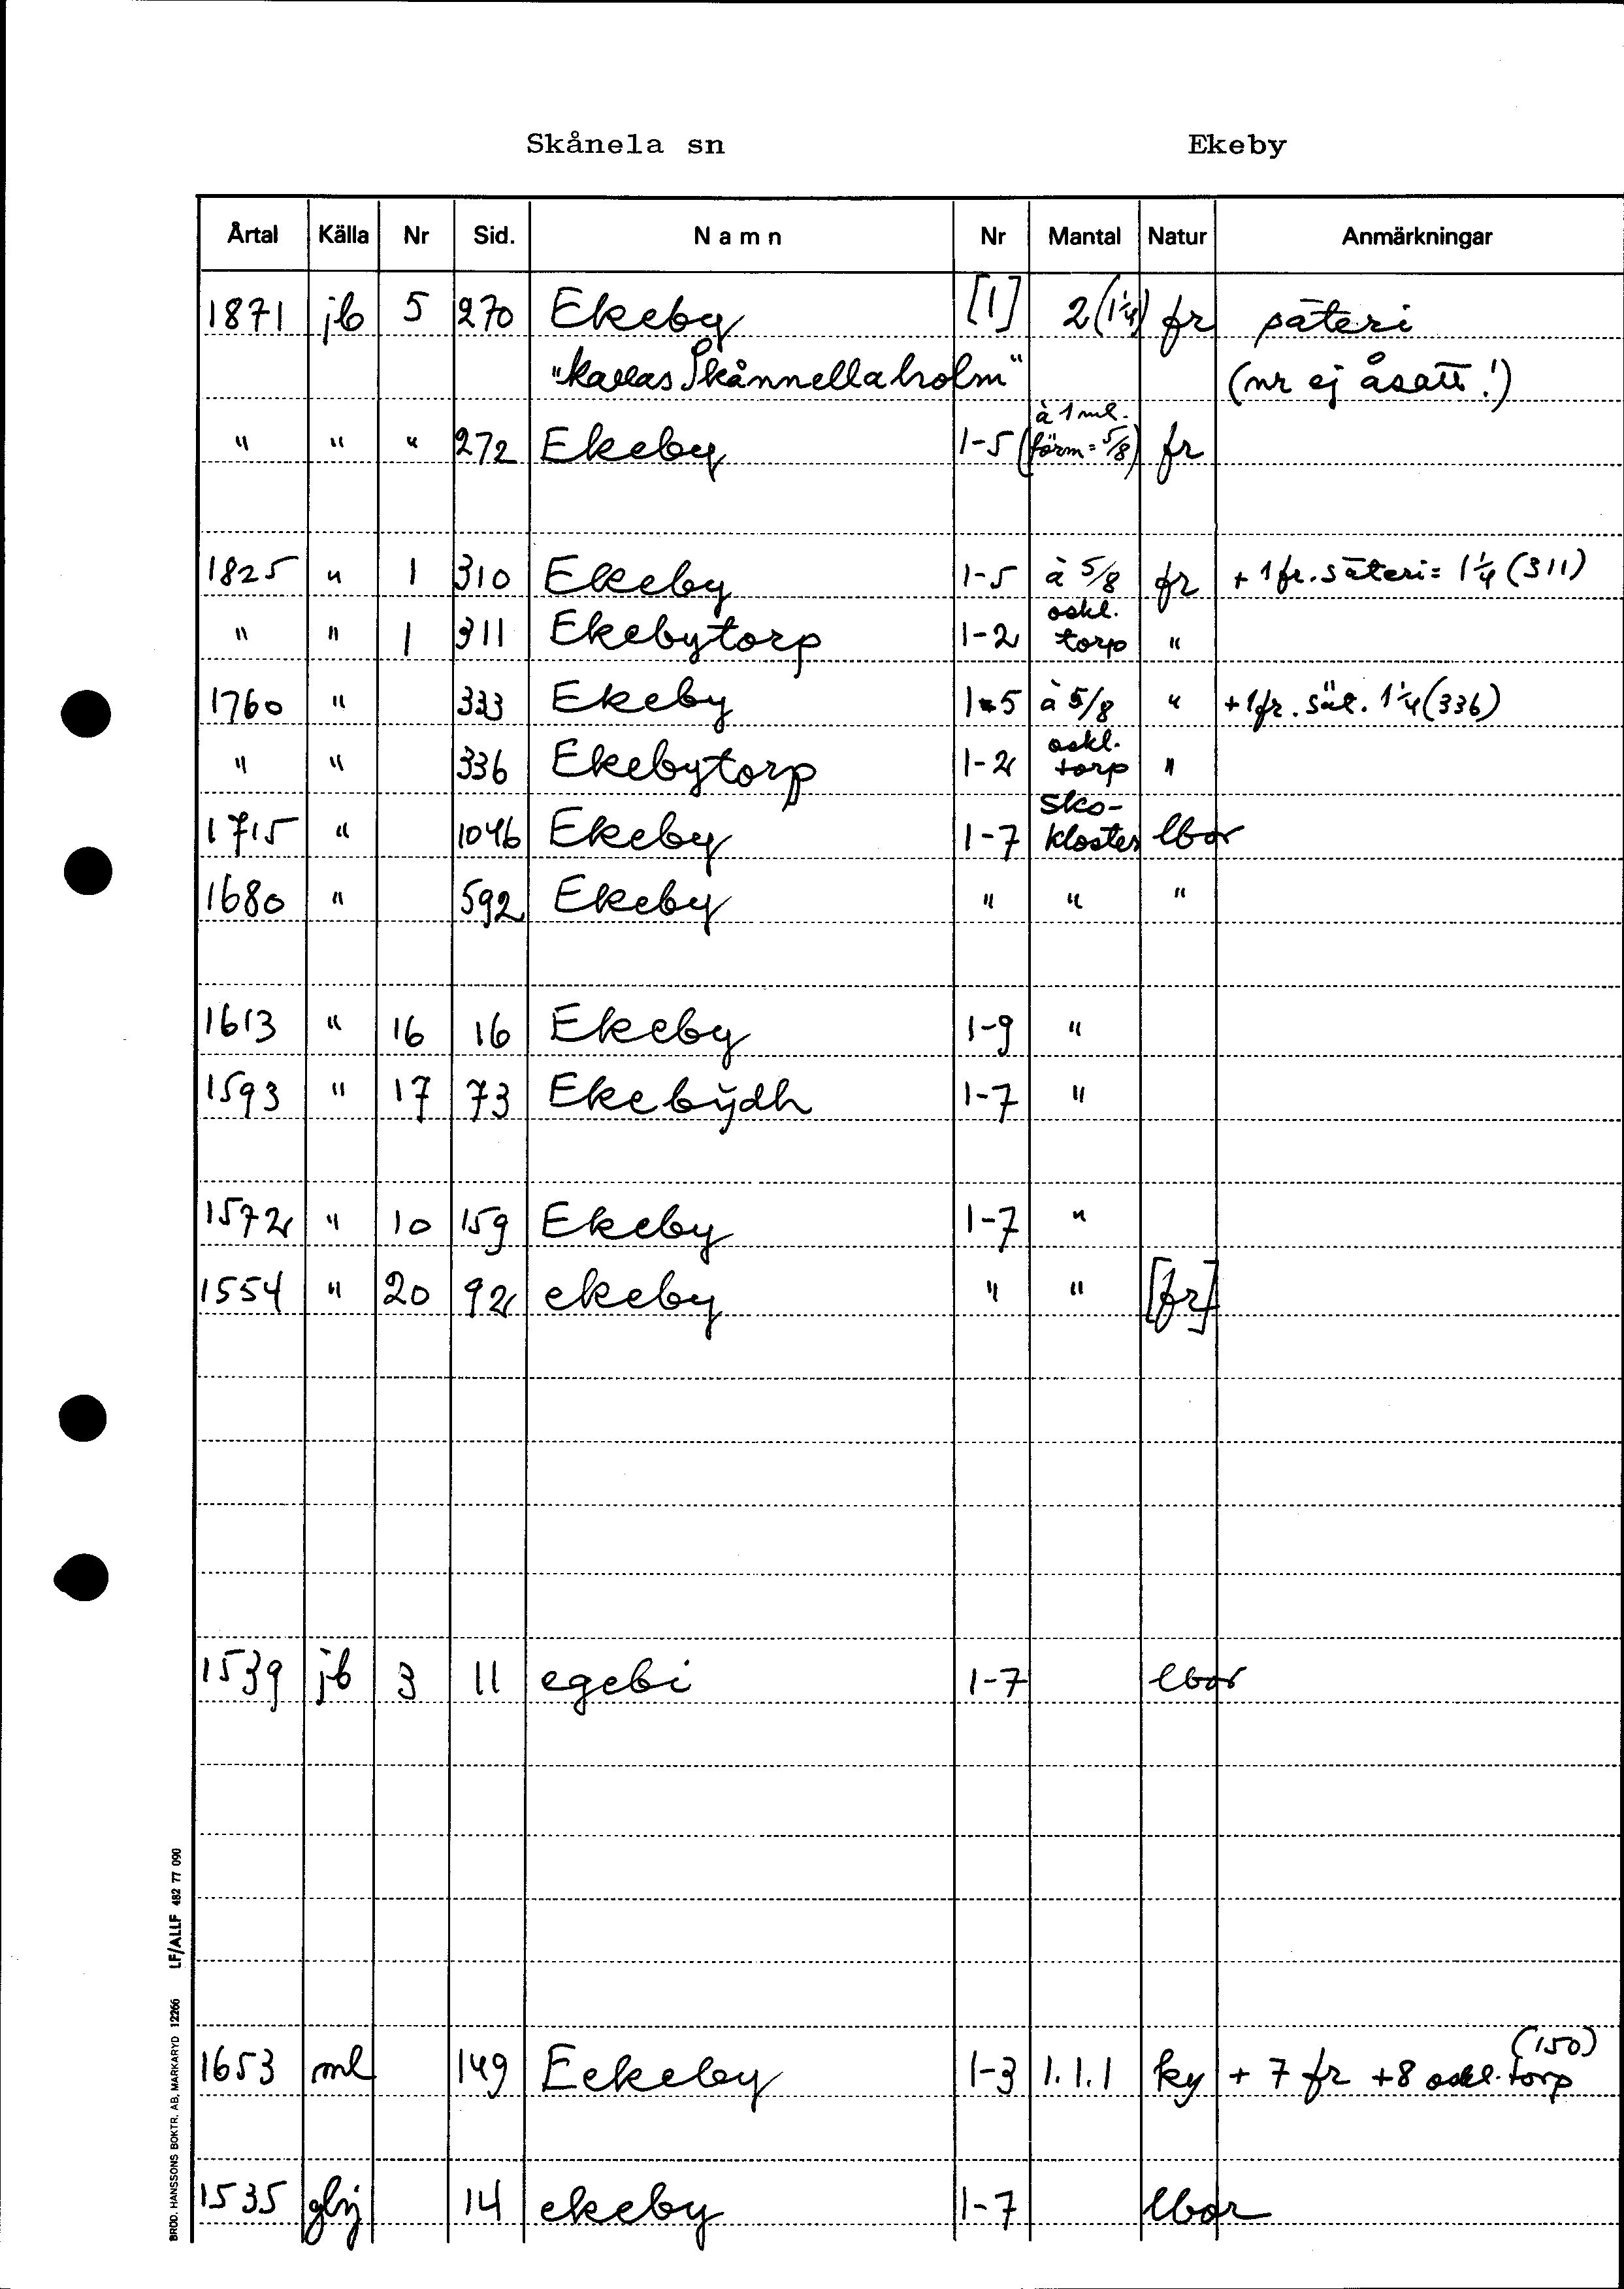 Skånela sn Ekeby
Årtal Källa Nr Sid. Namn Nr Mantal Natur Anmärkningar
1871 jb 5 270 Ekeby [1] 2 (1 1/4) fr säteri
"kallas Skånnellaholm" (nr ej åsatt!)
à 1 ml.
" " " 272 Ekeby 1-5 (förm = 5/8) fr
1825 " 1 310 Ekeby 1-5 à 5/8 fr + 1 fr. säteri = 1 1/4 (311)
oskl.
" " 1 311 Ekebytorp 1-2 torp "
1760 " 333 Ekeby 1-5 à 5/8 " + 1 fr. sät. 1 1/4 (336)
oskl.
" " 336 Ekebytorp 1-2 torp "
Sko-
1715 " 1046 Ekeby 1-7 kloster lbor
1680 " 592 Ekeby " " "
1613 " 16 16 Ekeby 1-9 "
1593 " 17 73 Ekebÿdh 1-7 "
1572 " 10 159 Ekeby 1-7 "
1554 " 20 92 ekeby " " [fr]
1539 jb 3 11 egebi 1-7 lbor
(150)
1653 ml 149 Eekeby 1-3 1.1.1 ky + 7 fr + 8 oskl. torp
1535 gbj 14 ekeby 1-7 lbor
BRÖD. HANSSONS BOKTR. AB, MARKARYD 12266 LF/ALLF 482 77 090